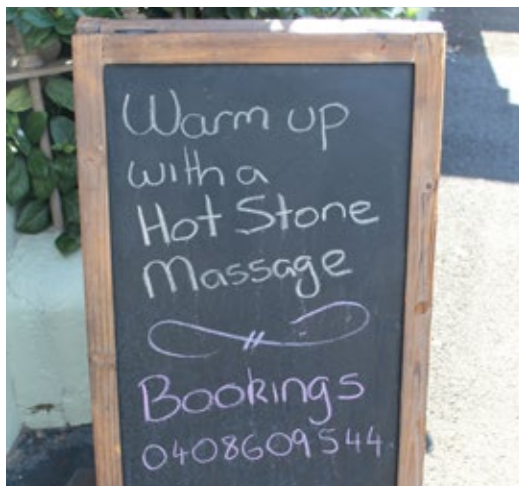 Warm up
with a
Hot Stone
Massage
Bookings
0408609544